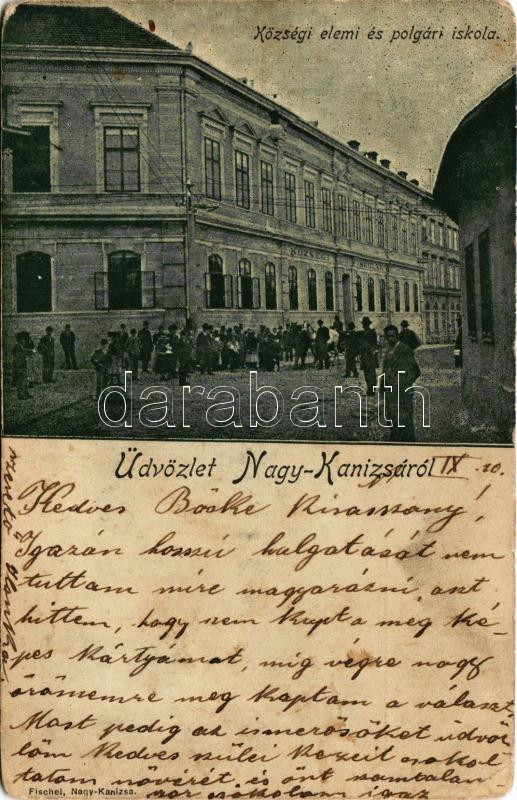 Községi elemi és polgári iskola.
KÖZSÉGI
darabanth.com
Üdvözlet Nagy-Kanizsáról IX 10.
Kedves Böske Kisasszony!
Igazán hosszú halgatását nem
tuttam mire magyarázni, aszt
hittem, hogy nem kapta meg ké-
pes kártyámat, mig végre nagy
örömemre meg kaptam a választ.
Most pedig az ismerősöket üdvöz
löm kedves szülei kezeit csokol
tatom nővérét is önt számtalan
szor csókolom igaz
Fischel, Nagy-Kanizsa.
szerető